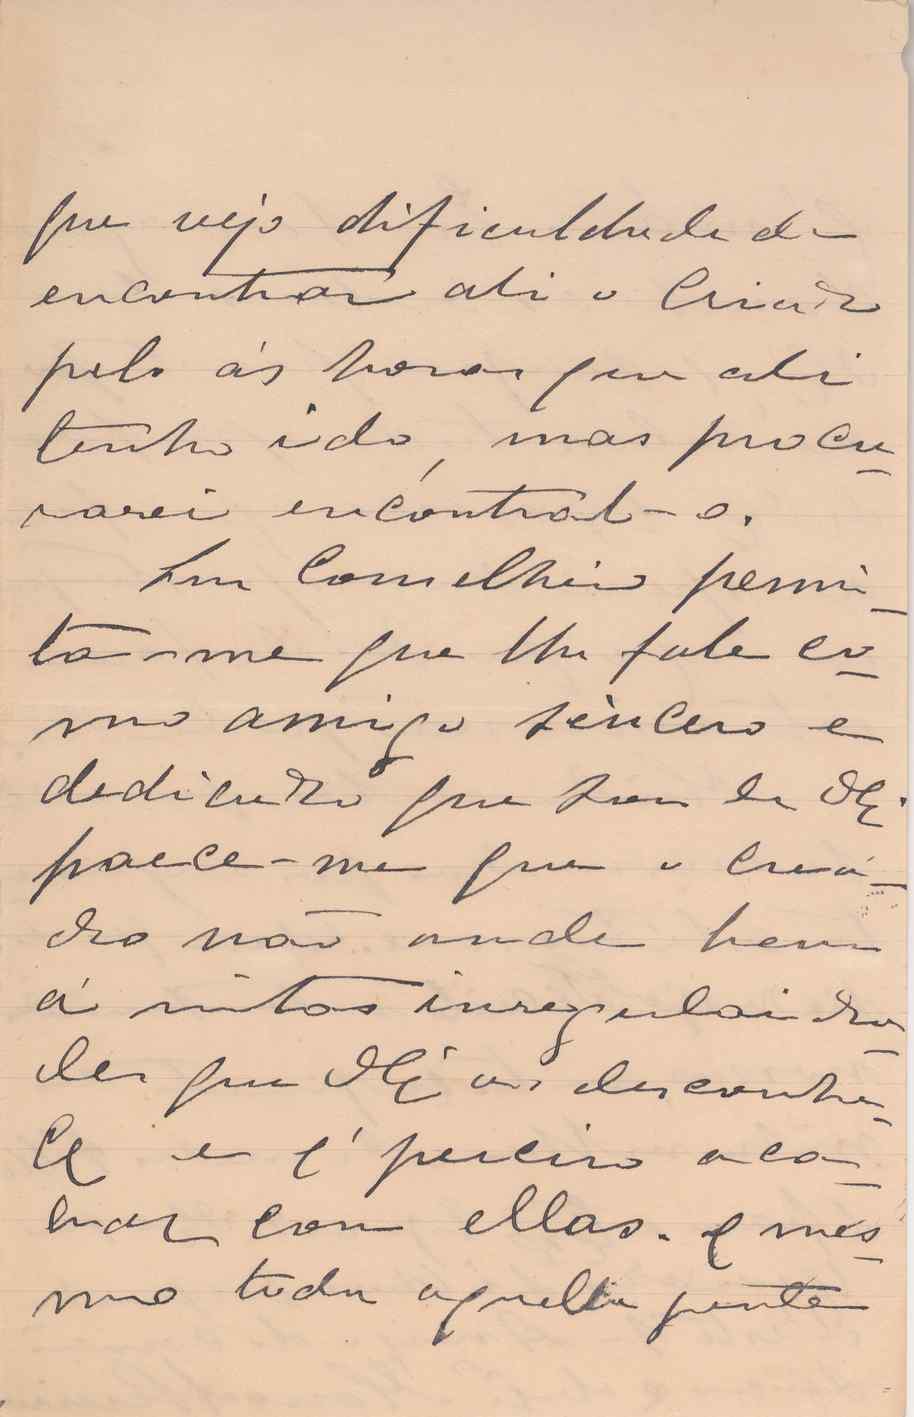 que vejo dificuldade de
encontrar ali o Criado
pelo ás horas que ali
tenho ido, mas procu-
rarei encontral-o.
Snr Conselheiro permi-
ta-me que lhe fale co-
mo amigo sincero e
dedicado que sou de VEx.
parece-me que o crea-
do não anda bem
á muitas irregularida-
des que VEx. as desconhe-
ce e é preciso aca-
bar com ellas. e mes-
mo toda aquella gente